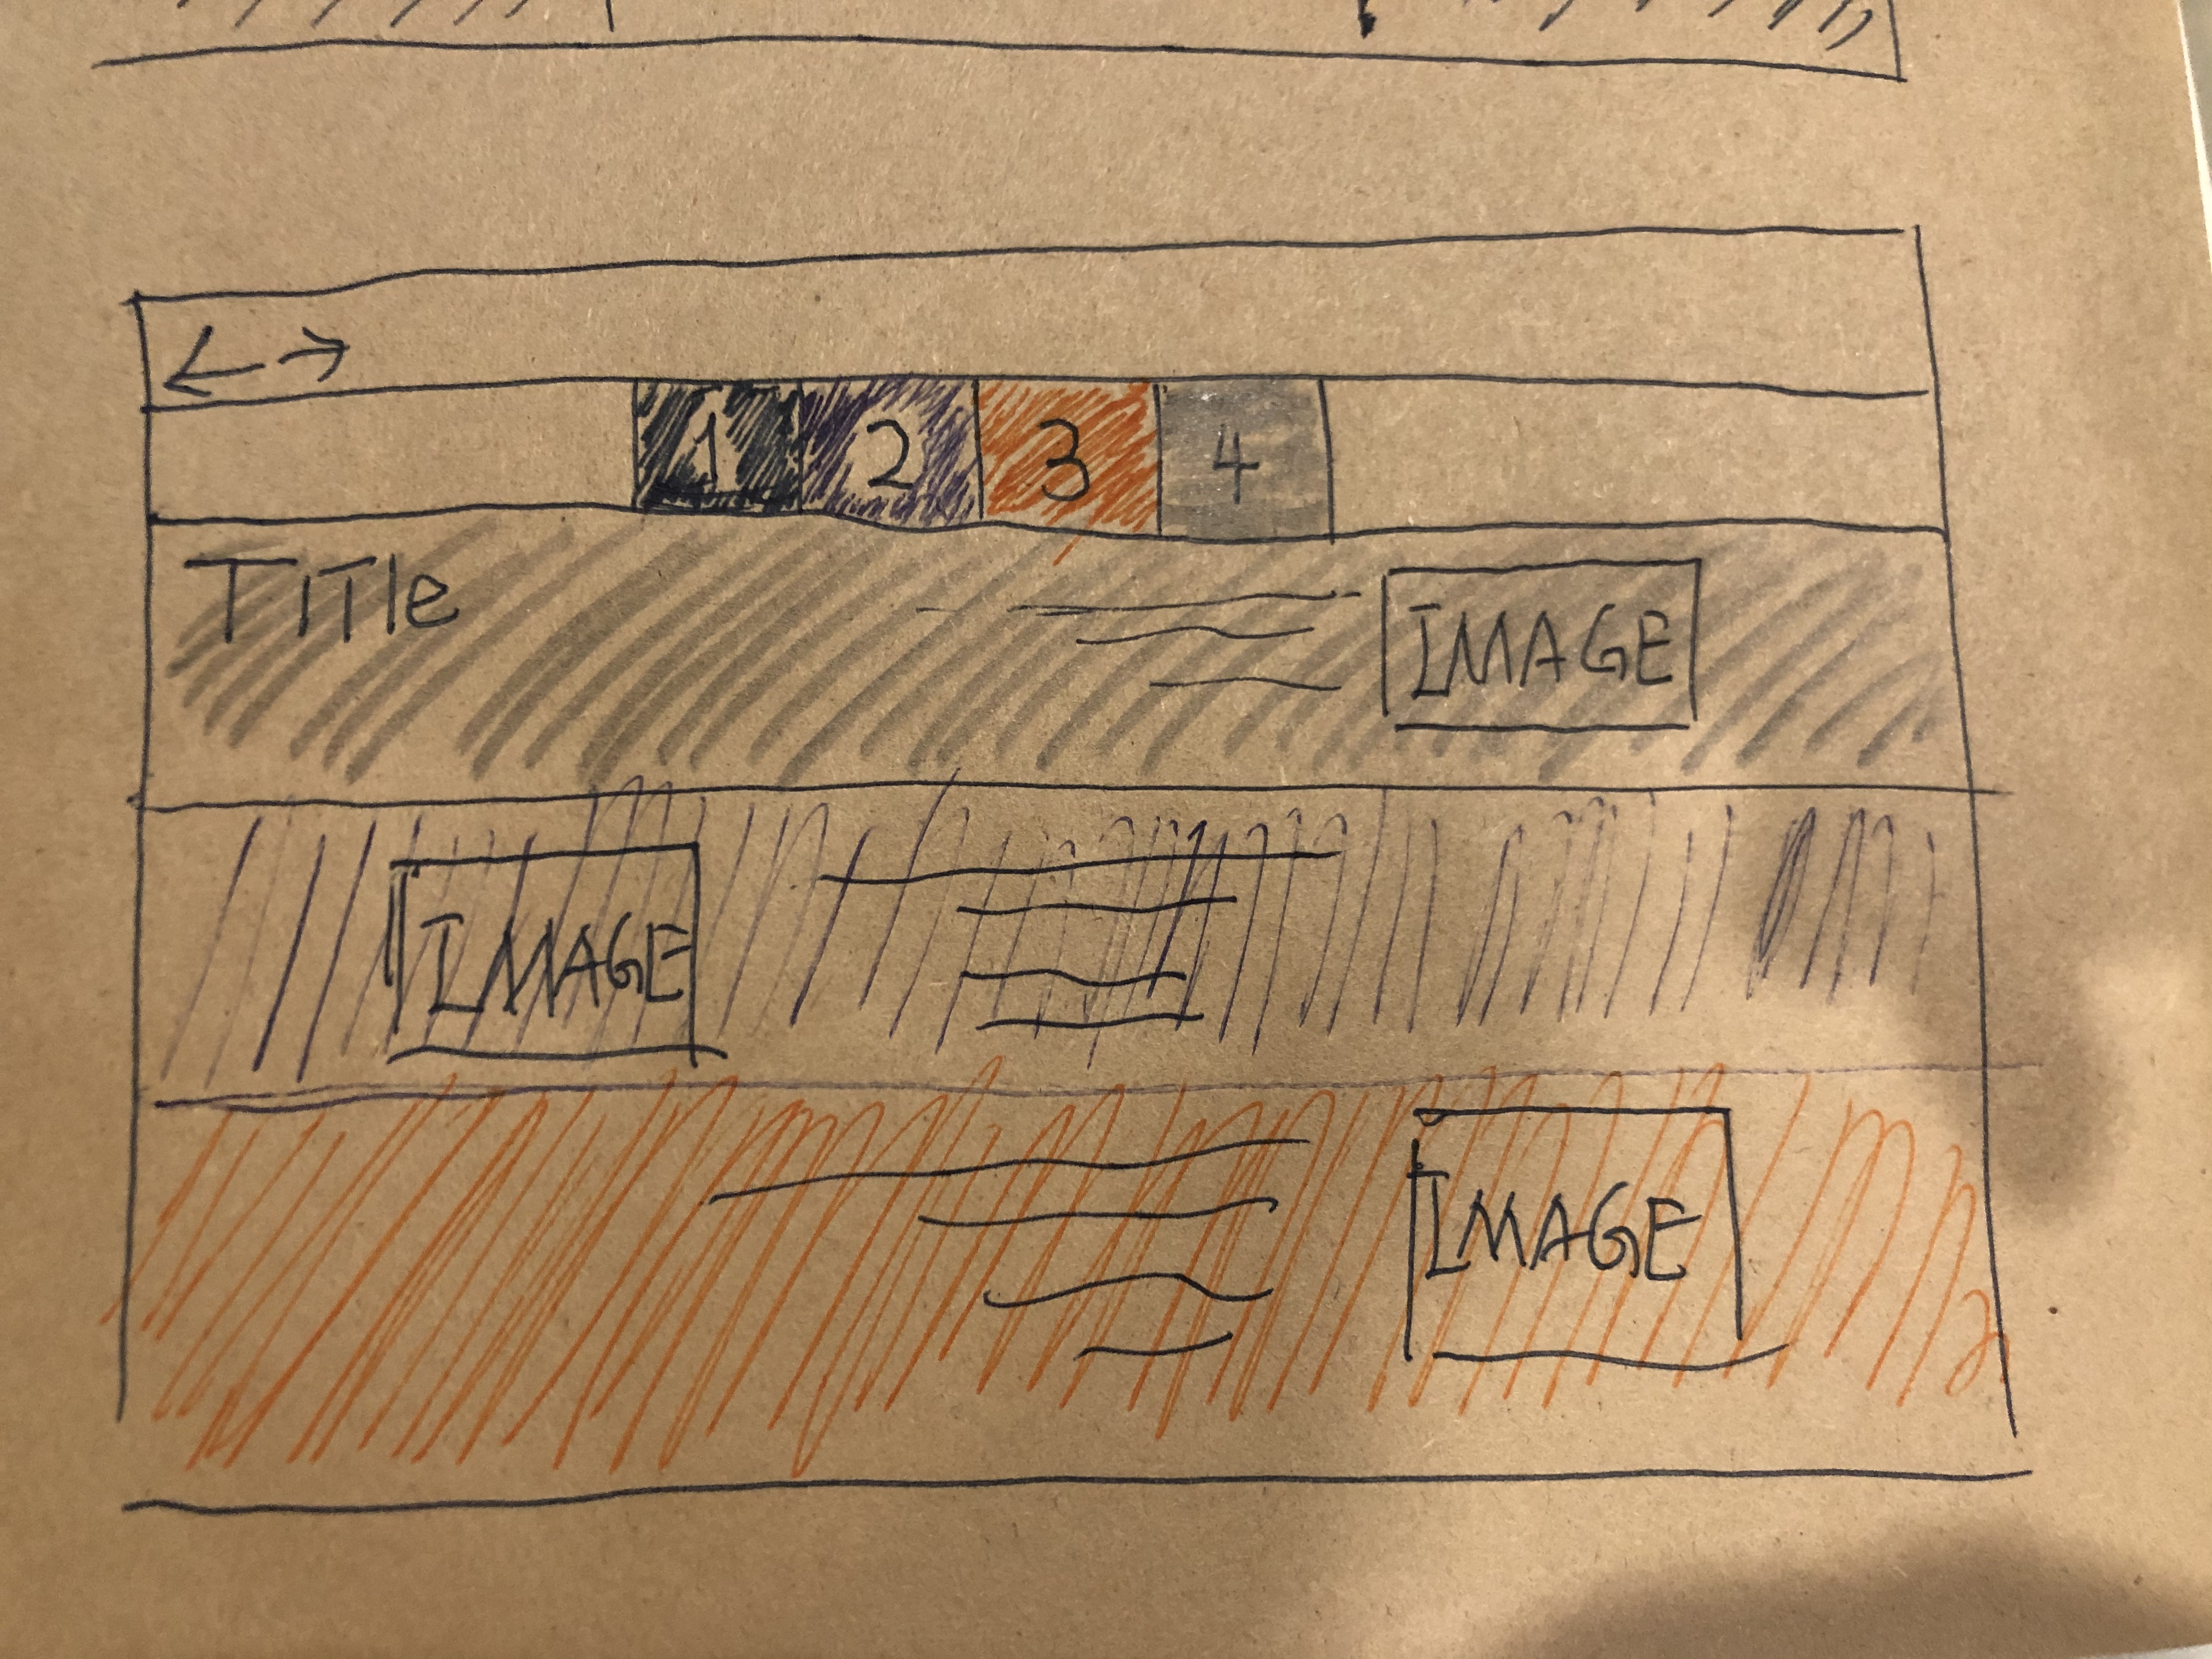 ← →
1 2 3 4
TiTle
IMAGE
IMAGE
IMAGE